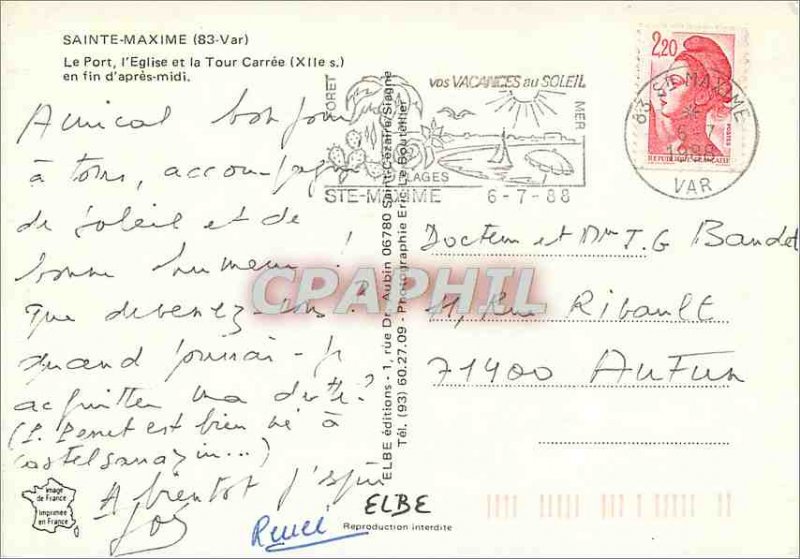 SAINTE-MAXIME (83-Var)
Le Port, l'Eglise et la Tour Carrée (XIIe s.)
en fin d'après-midi.
Amical bonjour
à tous, accompagné
de soleil et de
bonne humeur !
Que devenez-vous ?
Quand pourrai-je
acquitter ma dette ?
(P. Perret est bien né à
Castelsarrazin...)
A bientôt j'espère
image
de France
Imprimée
en France
ELBE éditions - 1, rue Dr. Aubin 06780 Saint-Cézaire/Siagne
Tél. (93) 60.27.09 - Photographie Eric Le Bouteiller
FORET
vos VACANCES au SOLEIL
MER
PLAGES
STE-MAXIME 6-7-88
2,20
POSTES
REPUBLIQUE FRANÇAISE
83 STE MAXIME
6-7
1988
VAR
Docteur et Mme J.G Bandet
11, Rue Ribault
71400 AUTUN
CPAPHIL
ELBE
Reproduction interdite